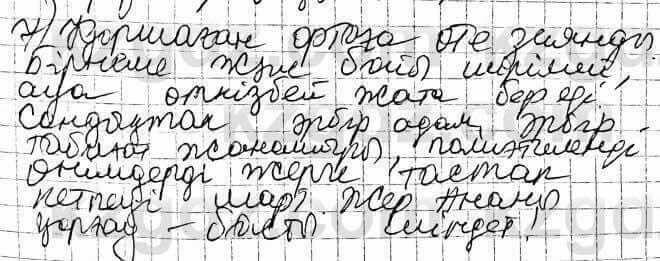 7) Қоршаған ортаға өте зиянды
Бірнеше жүз бойы шірімей,
ауа өткізбей жата береді.
Сондықтан әрбір адам, әрбір
табиғат жанашыры полиэтиленді
өнімдерді жерге тастап
кетпеуі шарт. Жер Ананы
қорғау - басты міндет!